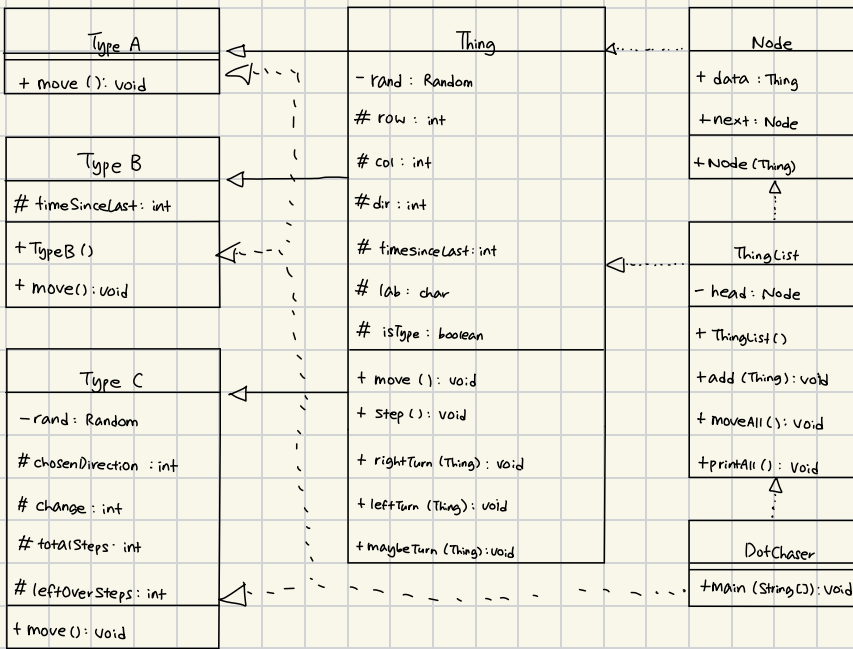 Type A
+ move (): void
Type B
# timeSinceLast: int
+ TypeB ()
+ move(): void
Type C
- rand: Random
# chosenDirection : int
# change: int
# totalSteps: int
# leftOverSteps: int
+ move(): void
Thing
- rand: Random
# row: int
# col: int
# dir: int
# timeSinceLast: int
# lab: char
# isType: boolean
+ move (): void
+ step (): void
+ rightTurn (Thing): void
+ leftTurn (Thing): void
+ maybeTurn (Thing): void
Node
+ data : Thing
+ next: Node
+ Node (Thing)
ThingList
- head: Node
+ ThingList()
+ add (Thing): void
+ moveAll (): void
+ printAll (): void
DotChaser
+ main (String[]): void